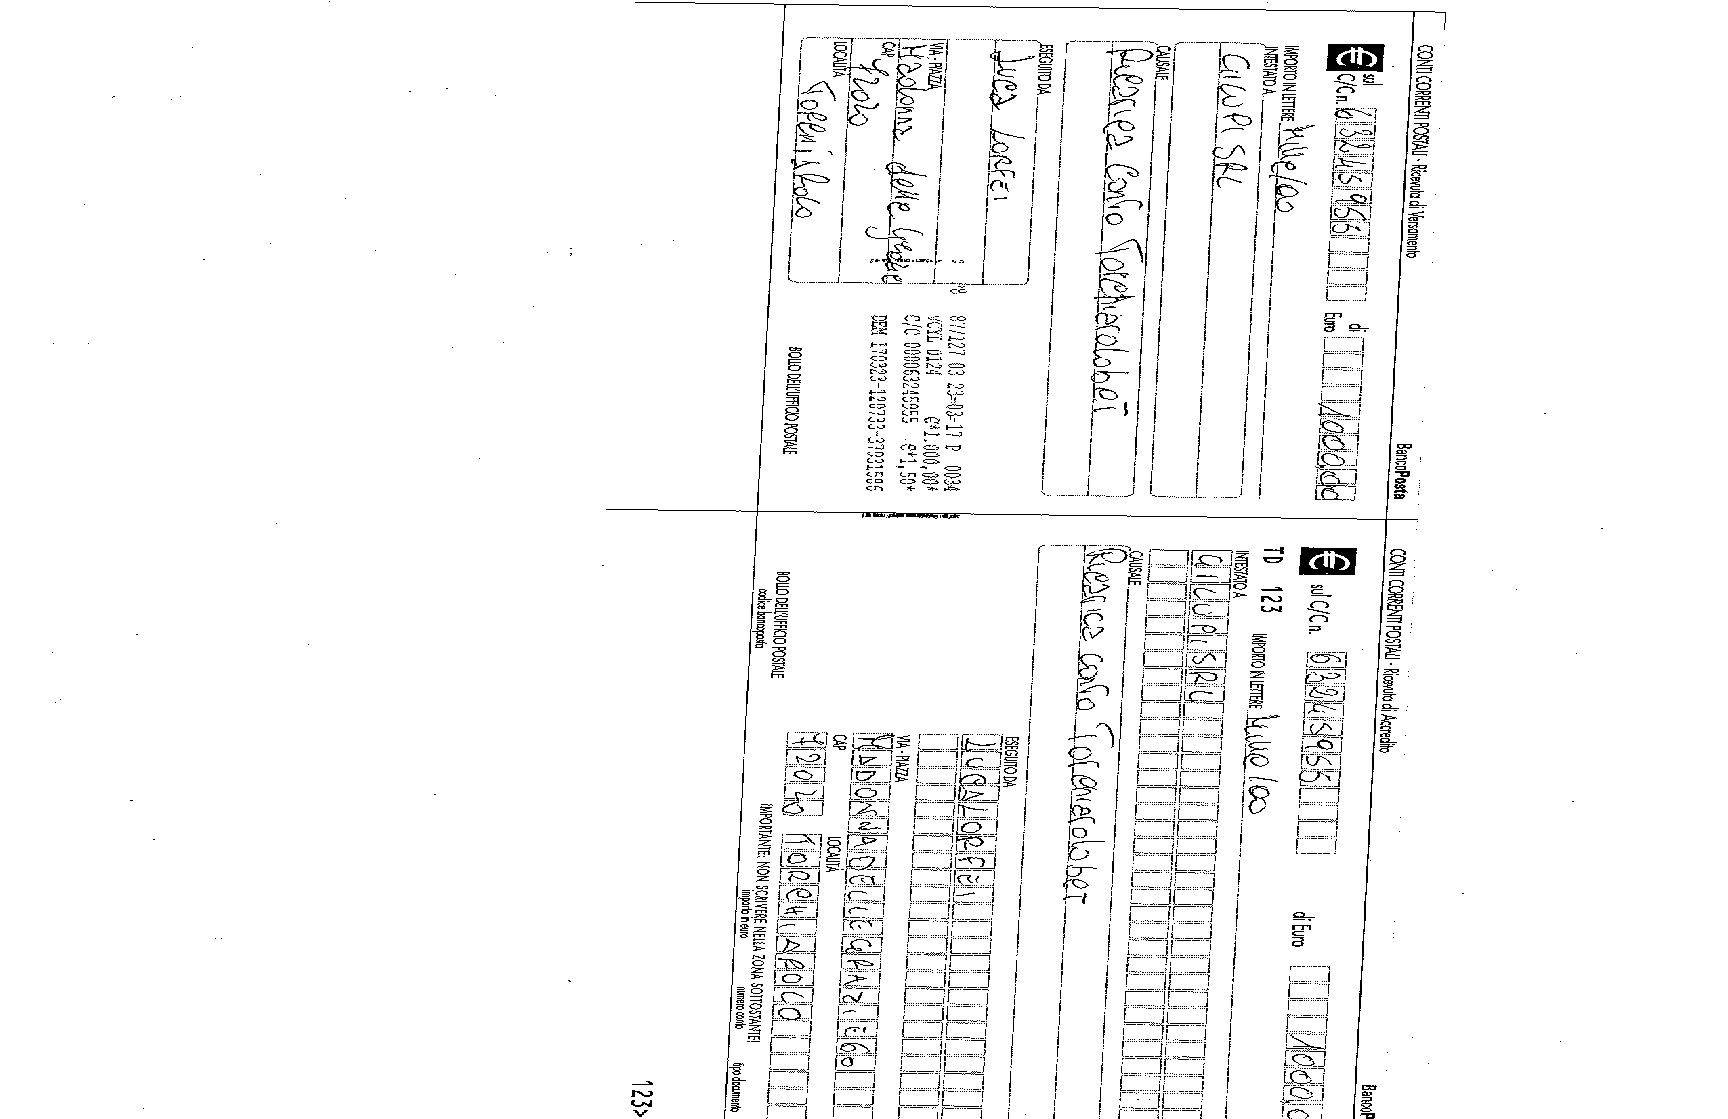 CONTI CORRENTI POSTALI - Ricevuta di Versamento
BancoPosta
€ sul C/C n. 63245955 di Euro 1000,00
IMPORTO IN LETTERE Mille/00
INTESTATO A
CILUPI SRL
CAUSALE
Ricarica Conto Torchiarolobet
ESEGUITO DA
Luca LORFEI
VIA - PIAZZA
Madonna delle Grazie
CAP
72020
LOCALITÀ
Torchiarolo
87/127 03 23-03-17 P 0034
VCYL 0124 €*1.000,00*
C/C 000063245955 €*1,50*
BOLLO DELL'UFFICIO POSTALE
CONTI CORRENTI POSTALI - Ricevuta di Accredito
BancoP
€ sul C/C n. 63245955 di Euro 1000,0
TD 123 IMPORTO IN LETTERE Mille/00
INTESTATO A
CILUPI SRL
CAUSALE
Ricarica conto Torchiarolobet
ESEGUITO DA
LUCA LORFEI
VIA - PIAZZA
MADONNA DELLE GRAZIE 60
CAP LOCALITÀ
72020 TORCHIAROLO
BOLLO DELL'UFFICIO POSTALE
codice bancoposta
IMPORTANTE: NON SCRIVERE NELLA ZONA SOTTOSTANTE!
importo in euro numero conto tipo documento
123>